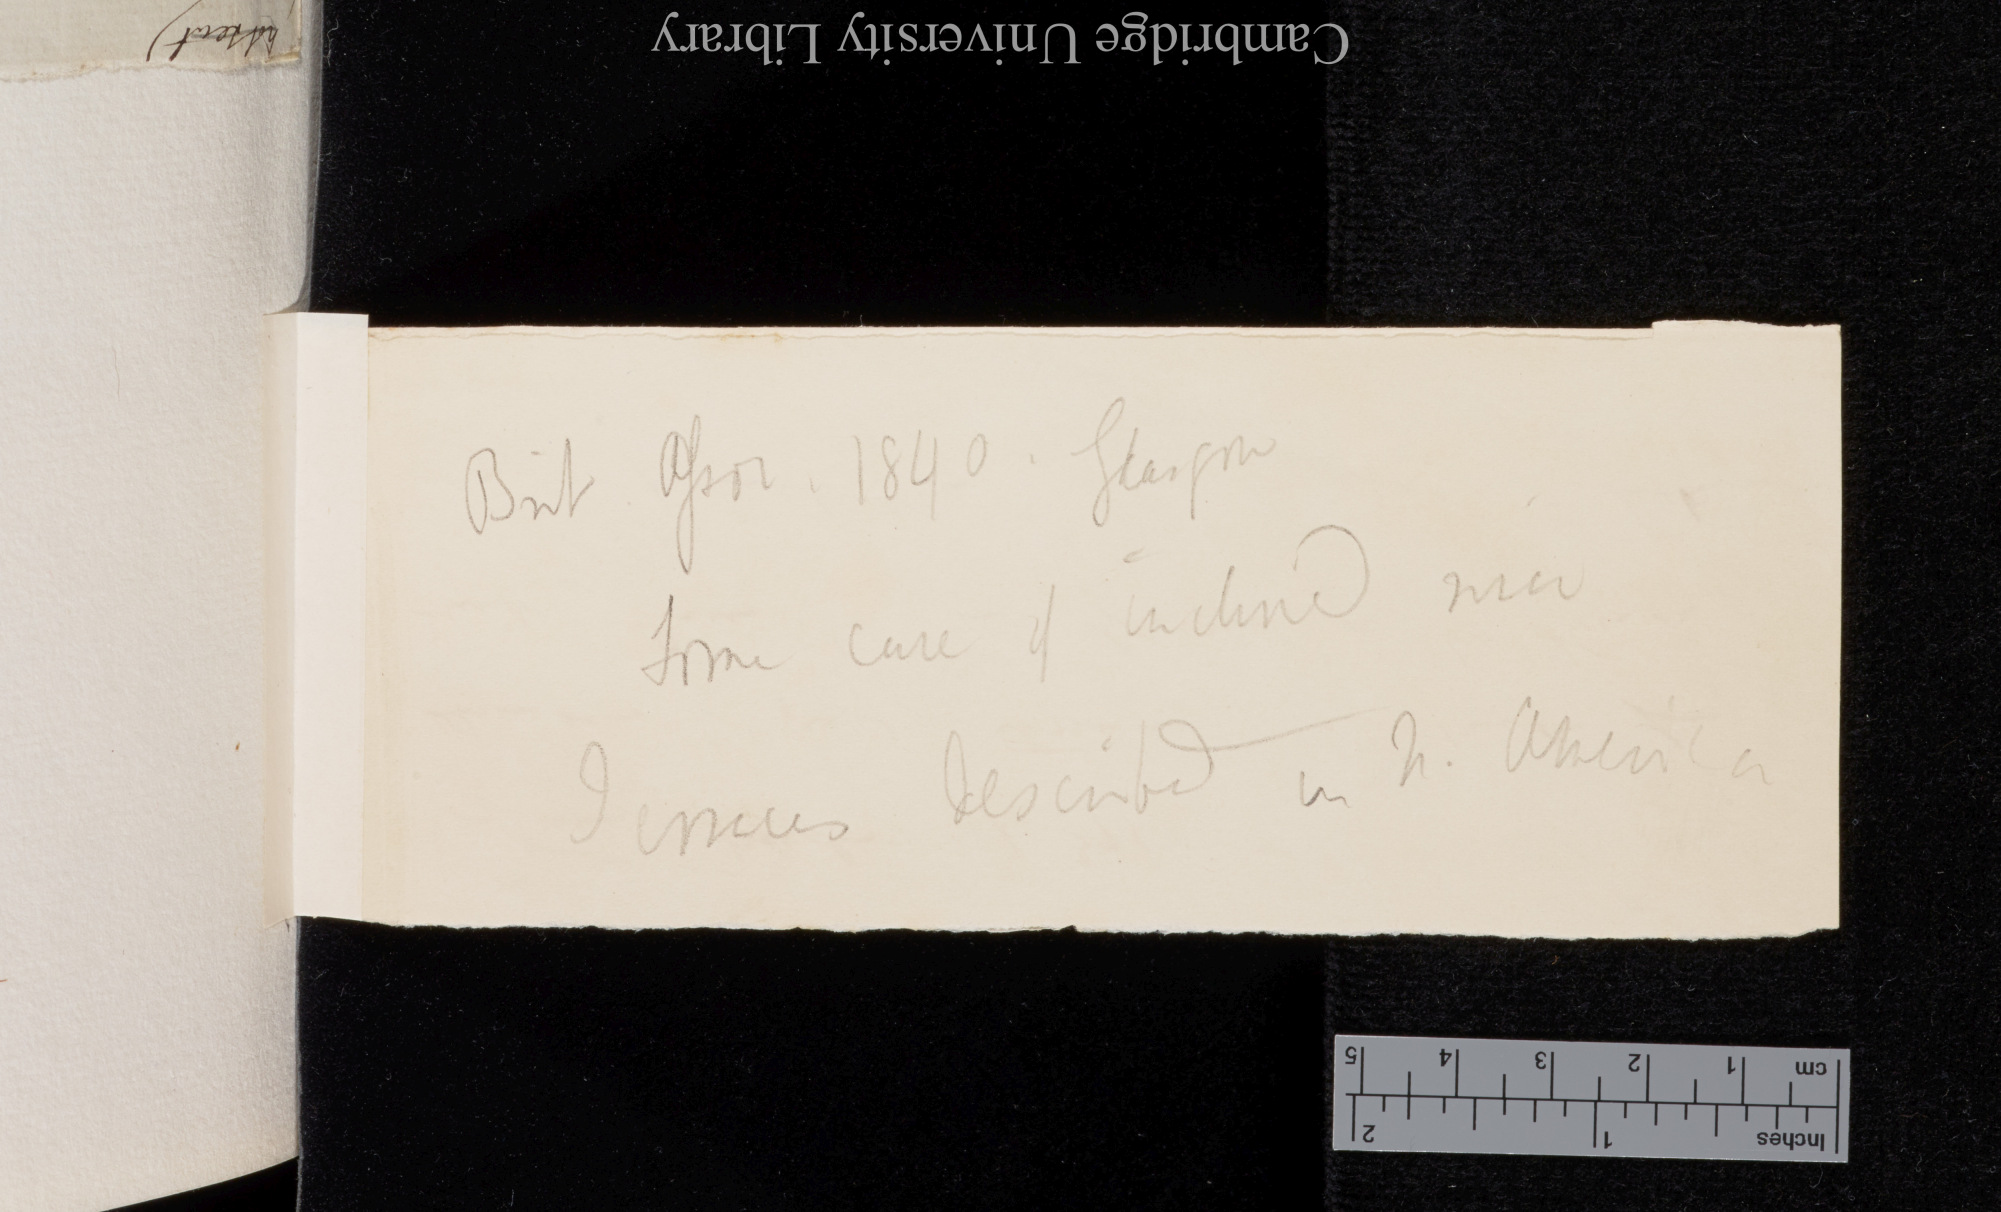 Cambridge University Library
Brit Assoc. 1840. Glasgow
Some case of inclined river
Terraces described in N. America
cm 1 2 3 4 5
Inches 1 2